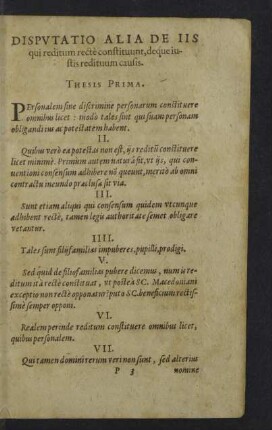 DISPVTATIO ALIA DE IIS
qui reditum rectè constituunt, deque iu-
stis redituum causis.
THESIS PRIMA.
PErsonalem sine discrimine personarum constituere
omnibus licet: modò tales sint qui suam personam
obligandi ius ac potestatem habent.
II.
Quibus verò ea potestas non est, ijs reditũ constituere
licet minimè. Proinum autem naturâ fit, vt ijs, qui con-
uentioni consensum adhibere nõ queunt, meritò ab omni
contractu ineundo praeclusa sit via.
III.
Sunt etiam aliqui qui consensum quidem vtcunque
adhibent rectè, tamen legũ authoritate semet obligare
vetantur.
IIII.
Tales sunt filijfamilias impuberes, pupilli, prodigi.
V.
Sed quid de filiofamilias pubere dicemus, num is re-
ditum ità rectè constituat, vt postea SC. Macedoniani
exceptio non rectè opponatur? puto SC. beneficium rectis-
simè semper opponi.
VI.
Realem perinde reditum constituere omnibus licet,
quibus personalem.
VII.
Qui tamen domini rerum veri non sunt, sed alterius
P 3 nomine